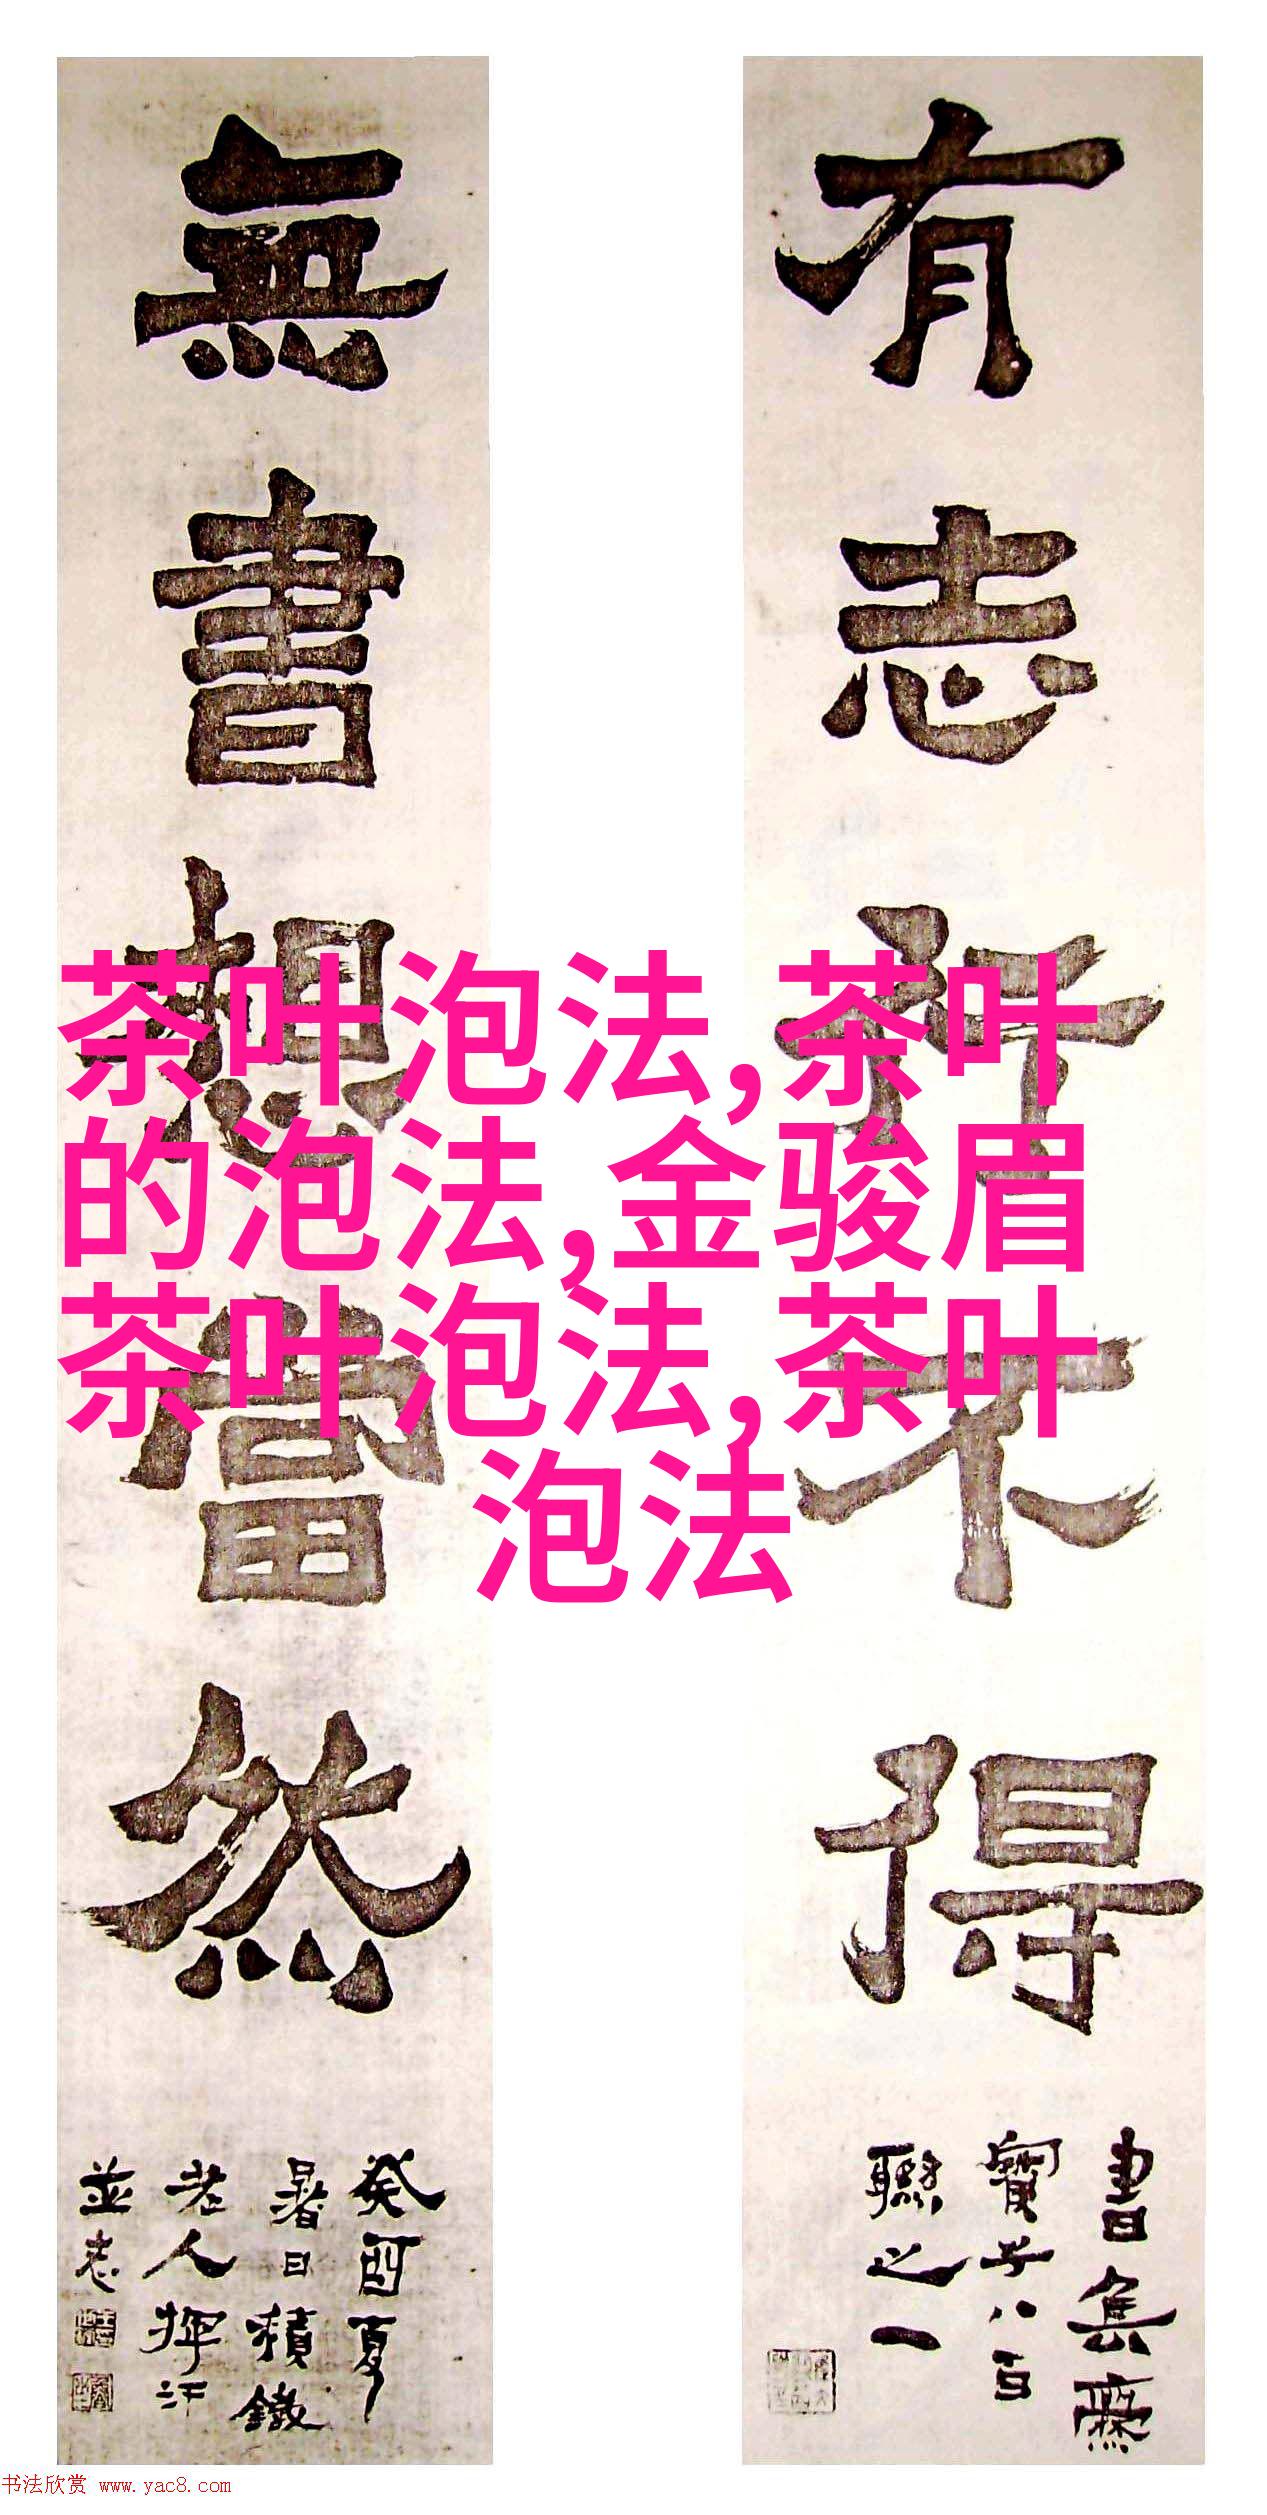 有志行不得
書集爨
寶子八百
聯之一
無書想當然
癸酉夏
暑日積鐵
老人揮汗
並志
茶叶泡法,茶叶
的泡法,金骏眉
茶叶泡法,茶叶
泡法
书法欣赏 www.yac8.com